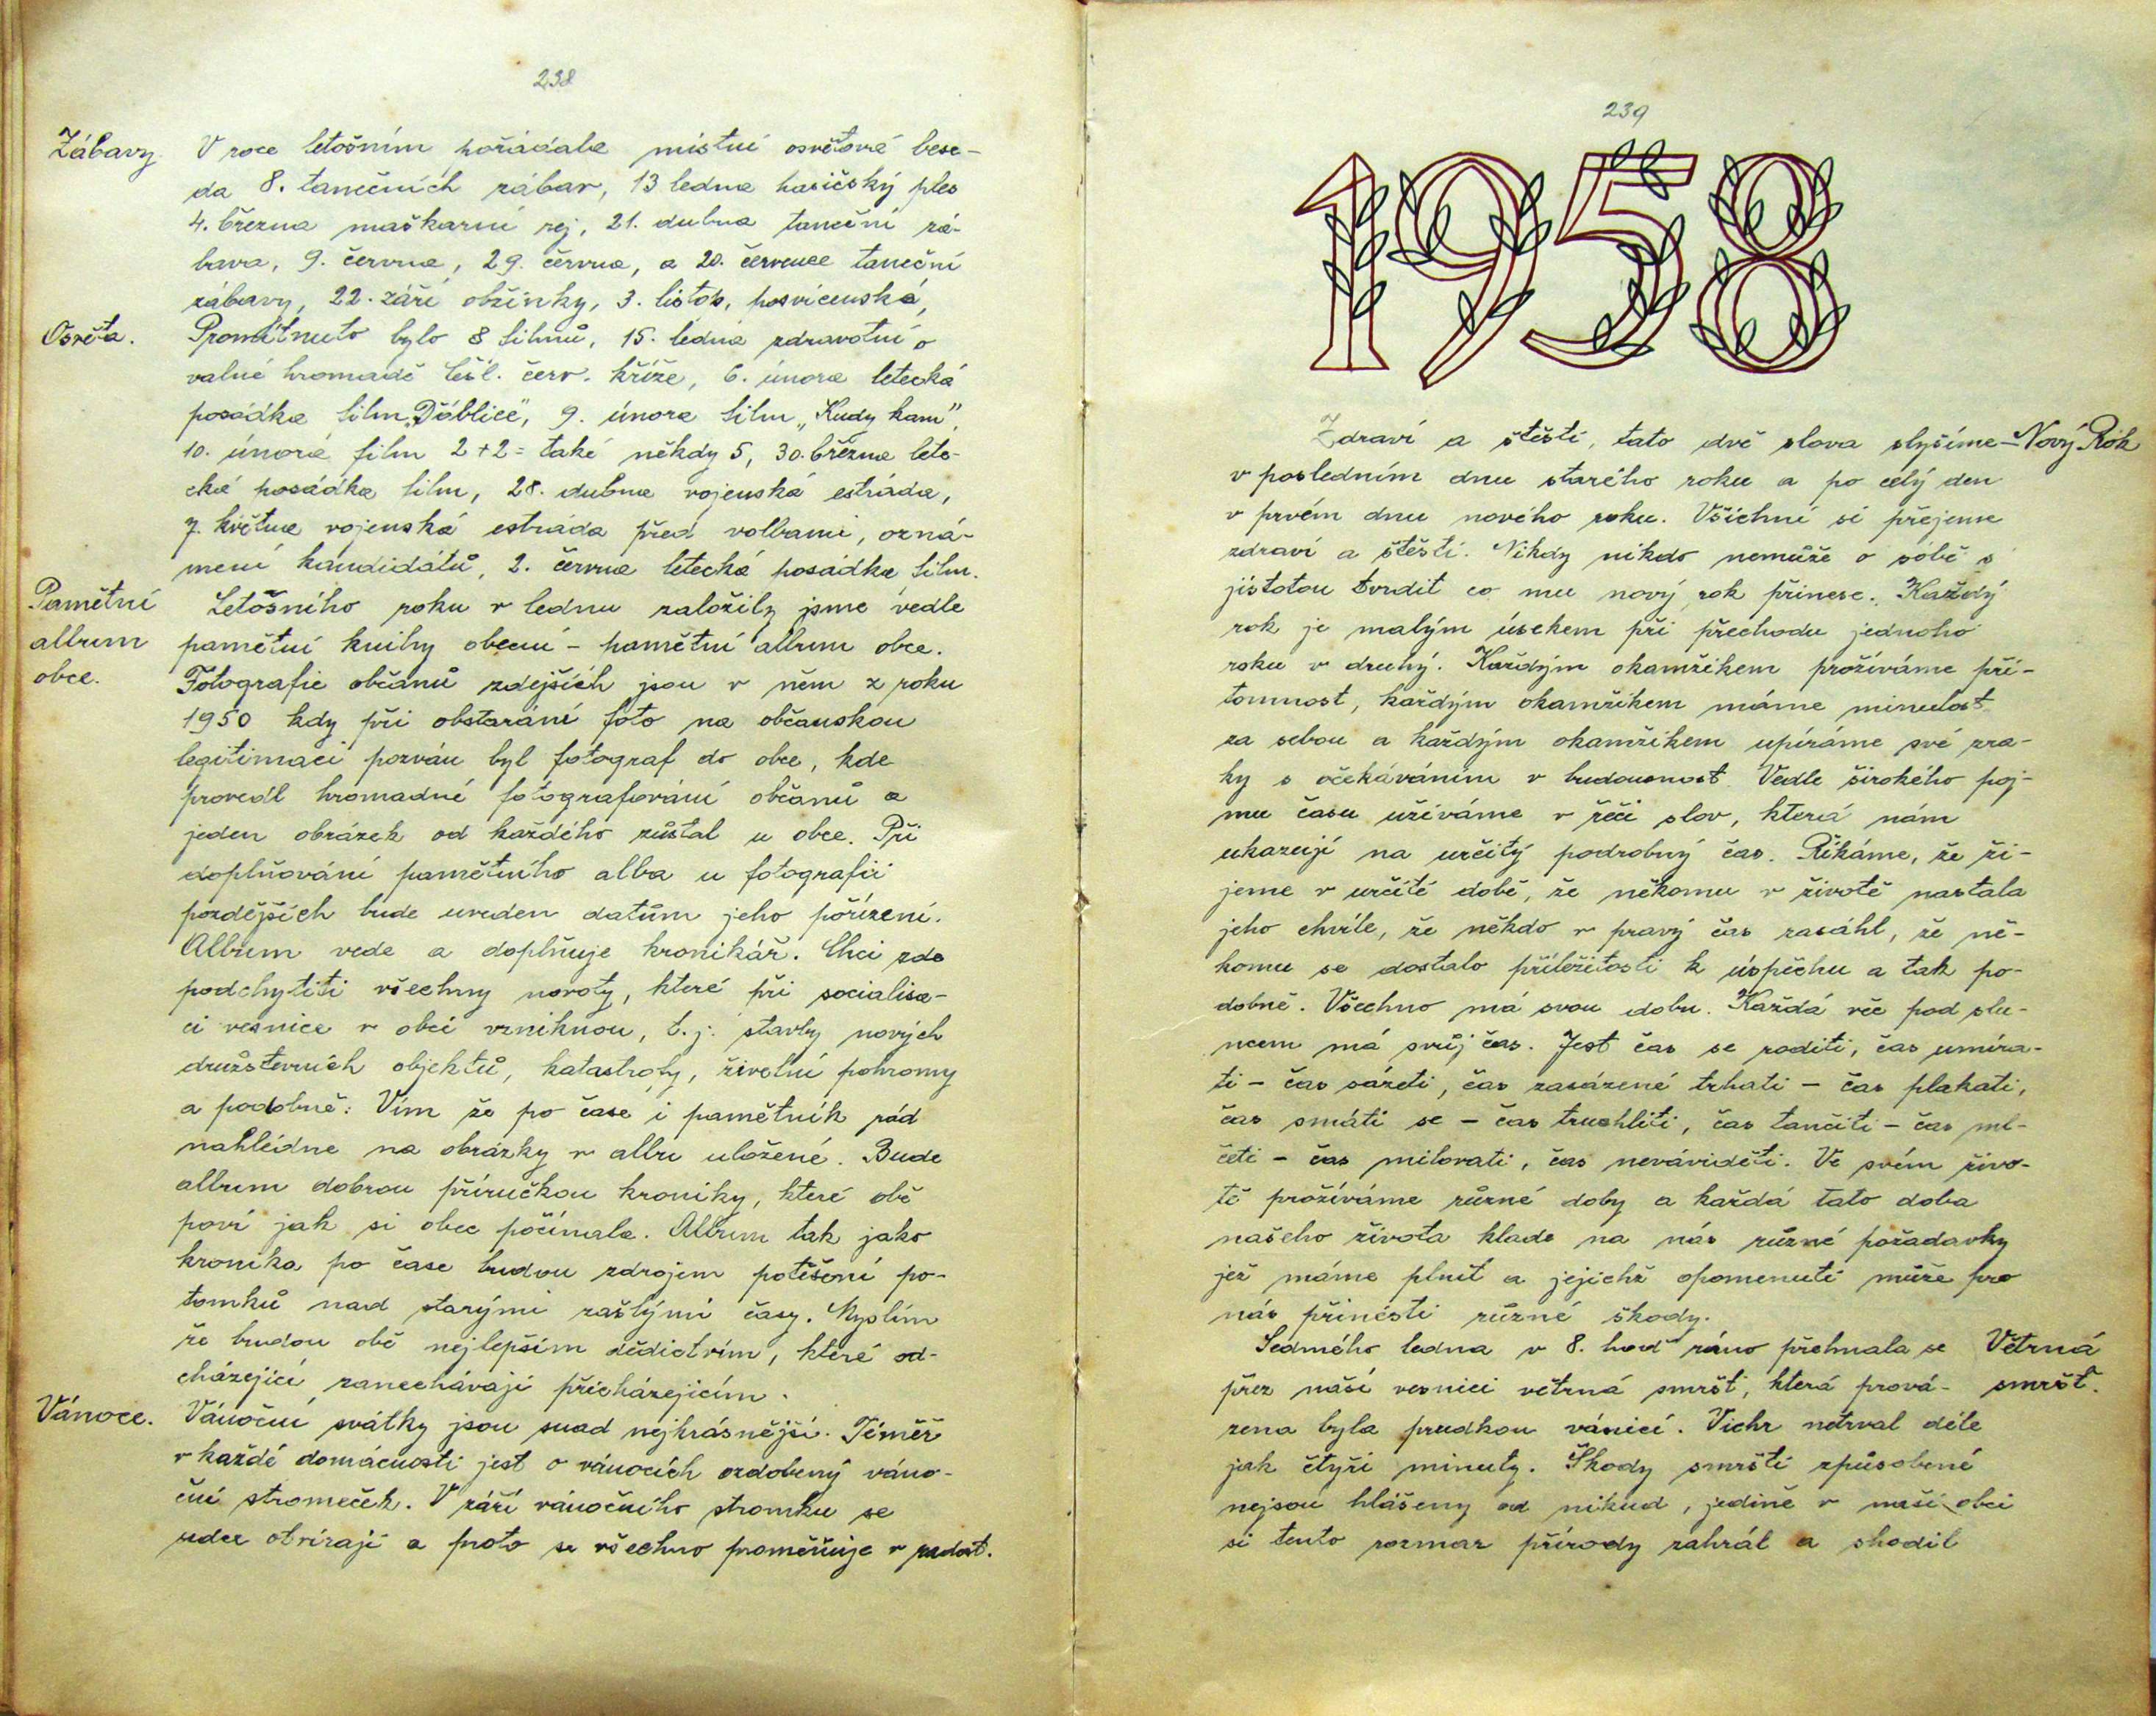 238
Zábavy. V roce letošním pořádala místní osvětová bese-
da 8. tanečních zábav, 13 ledna hasičský ples
4. března maškarní rej, 21. dubna taneční zá-
bava, 9. června, 29. června, a 20. července taneční
zábavy, 22. září obžínky, 3. listop. posvícenská,
Osvěta. Promítnuto bylo 8 filmů, 15. ledna zdravotní o
valné hromadě Česl. červ. kříže, 6. února letecká
posádka film „Ďáblice", 9. února film „Kudy kam",
10. února film 2+2= také někdy 5, 30. března lete-
cká posádka film, 28. dubna vojenská estráda,
7. května vojenská estráda před volbami, ozná-
mení kandidátů, 2. června letecká posádka film.
Pamětní Letošního roku v lednu založily jsme vedle
album pamětní knihy obecní – pamětní album obce.
obce. Fotografie občanů zdejších jsou v něm z roku
1950 kdy při obstarání foto na občanskou
legitimaci pozván byl fotograf do obce, kde
provedl hromadné fotografování občanů a
jeden obrázek od každého zůstal u obce. Při
doplňování pamětního alba u fotografií
pozdějších bude uveden datům jeho pořízení.
Album vede a doplňuje kronikář. Chci zde
podchytiti všechny novoty, které při socialisa-
ci vesnice v obci vzniknou, t. j. stavby nových
družstevních objektů, katastrofy, živelní pohromy
a podobně. Vím že po čase i pamětník rád
nahlédne na obrázky v albu uložené. Bude
album dobrou příručkou kroniky, které obě
poví jak si obec počínala. Album tak jako
kronika po čase budou zdrojem potěšení po-
tomků nad starými zašlými časy. Myslím
že budou obě nejlepším dědictvím, které od-
cházející zanechávají přicházejícím.
Vánoce. Vánoční svátky jsou snad nejkrásnější. Téměř
v každé domácnosti jest o vánocích ozdobený váno-
ční stromeček. V záři vánočního stromku se
srdce otvírají a proto se všechno proměňuje v radost.
239
1958
Zdraví a štěstí, tato dvě slova slyšíme – Nový Rok
v posledním dnu starého roku a po celý den
v prvém dnu nového roku. Všichni si přejeme
zdraví a štěstí. Nikdy nikdo nemůže o sobě s
jistotou tvrdit co mu nový rok přinese. Každý
rok je malým úsekem při přechodu jednoho
roku v druhý. Každým okamžikem prožíváme pří-
tomnost, každým okamžikem máme minulost
za sebou a každým okamžikem upíráme své zra-
ky s očekáváním v budoucnost. Vedle širokého poj-
mu času užíváme v řeči slov, která nám
ukazují na určitý podrobný čas. Říkáme, že ži-
jeme v určité době, že někomu v životě nastala
jeho chvíle, že někdo v pravý čas zasáhl, že ně-
komu se dostalo příležitosti k úspěchu a tak po-
dobně. Všechno má svou dobu. Každá věc pod slu-
ncem má svůj čas. Jest čas se roditi, čas umíra-
ti – čas sázeti, čas zasázené trhati – čas plakati,
čas smáti se – čas truchliti, čas tančiti – čas ml-
četi – čas milovati, čas nenáviděti. Ve svém živo-
tě prožíváme různé doby a každá tato doba
našeho života klade na nás různé požadavky
jež máme plnit a jejichž opomenutí může pro
nás přinésti různé škody.
Sedmého ledna v 8. hod ráno přehnala se Větrná
přez naší vesnici větrná smršť, která prová- smršť.
zena byla prudkou vánicí. Vichr netrval déle
jak čtyři minuty. Škody smrští způsobené
nejsou hlášeny od nikud, jedině v naší obci
si tento rozmar přírody zahrál a shodil